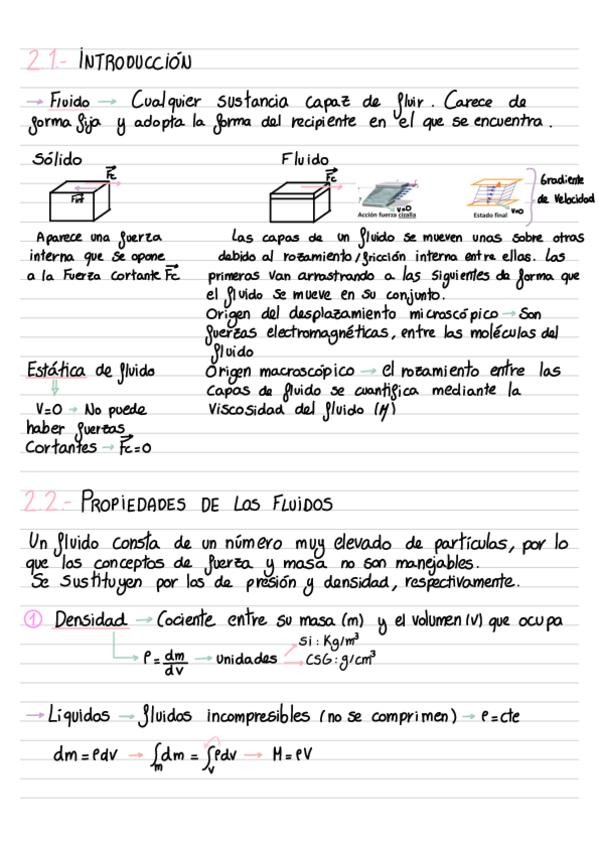 2.1.- INTRODUCCIÓN
→ Fluido → Cualquier sustancia capaz de fluir. Carece de
forma fija y adopta la forma del recipiente en el que se encuentra.
Sólido
Fc
Fint
Aparece una fuerza
interna que se opone
a la Fuerza cortante Fc
Fluido
Fc
V=0
Acción fuerza cizalla
V=0
Estado final
Gradiente
de velocidad
Las capas de un fluido se mueven unas sobre otras
debido al rozamiento/fricción interna entre ellas. Las
primeras van arrastrando a las siguientes de forma que
el fluido se mueve en su conjunto.
Origen del desplazamiento microscópico → Son
fuerzas electromagnéticas, entre las moléculas del
fluido
Origen macroscópico → el rozamiento entre las
capas de fluido se cuantifica mediante la
viscosidad del fluido (μ)
Estática de fluido
V=0 → No puede
haber fuerzas
Cortantes → Fc=0
2.2.- PROPIEDADES DE LOS FLUIDOS
Un fluido consta de un número muy elevado de partículas, por lo
que los conceptos de fuerza y masa no son manejables.
Se sustituyen por los de presión y densidad, respectivamente.
① Densidad → Cociente entre su masa (m) y el volumen (v) que ocupa
ρ = dm/dv → unidades
Si: Kg/m³
CSG: g/cm³
→ Líquidos → fluidos incompresibles (no se comprimen) → ρ=cte
dm = ρdv → ∫m dm = ∫v ρdv → M = ρV